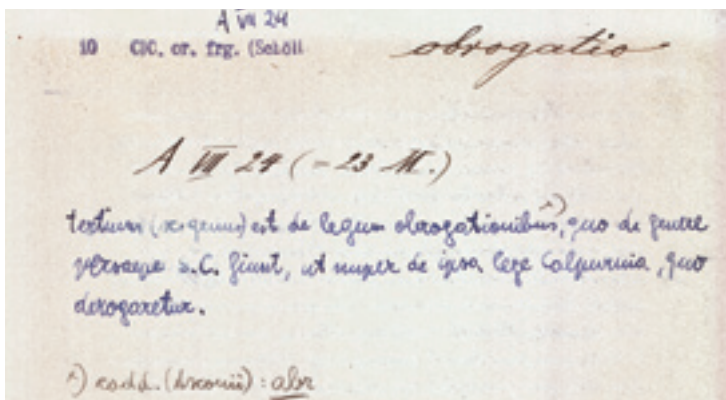 A VII 24
10 CIC. or. frg. (Schöll
obrogatio
A VII 24 (= 23 M.)
tertium (sc. genus) est de legum obrogationibus ¹), quo de genere
persaepe S.C. fiunt, ut nuper de ipsa lege Calpurnia, quo
derogaretur.
¹) codd. (Asconii): abr